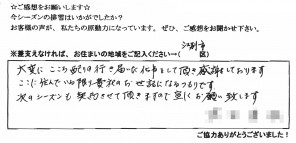 ☆ご感想をお願いします☆
今シーズンの排雪はいかがでしたか?
お客様の声が、私達の原動力になっています。ぜひ、ご感想をお聞かせ下さい。
※差支えなければ、お住まいの地域をご記入ください…(江別市 区)
大変にこころ配りの行き届いた仕事をして頂き感謝しております
ここに住んでいる限り貴社のお世話になるつもりです
次のシーズンも契約させて頂きますので宜しくお願い致します
ご協力ありがとうございました!